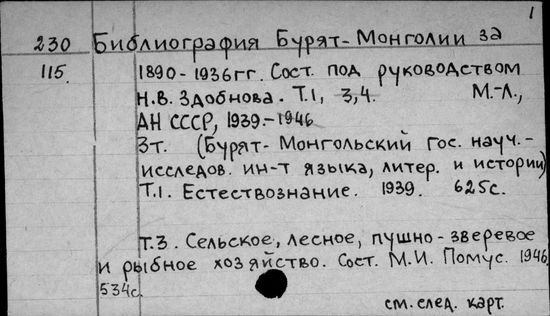 1
230 Библиография Бурят-Монголии за
115. 1890-1936гг. Сост. под руководством
Н.В. Здобнова. Т.1, 3,4. М.-Л.,
АН СССР, 1939.-1946.
3т. (Бурят-Монгольский гос. науч.-
исследов. ин-т языка, литер. и истории)
Т.1. Естествознание. 1939. 625с.
Т.3. Сельское, лесное, пушно-зверевое
и рыбное хозяйство. Сост. М.И. Помус. 1946.
534с.
см. след. карт.